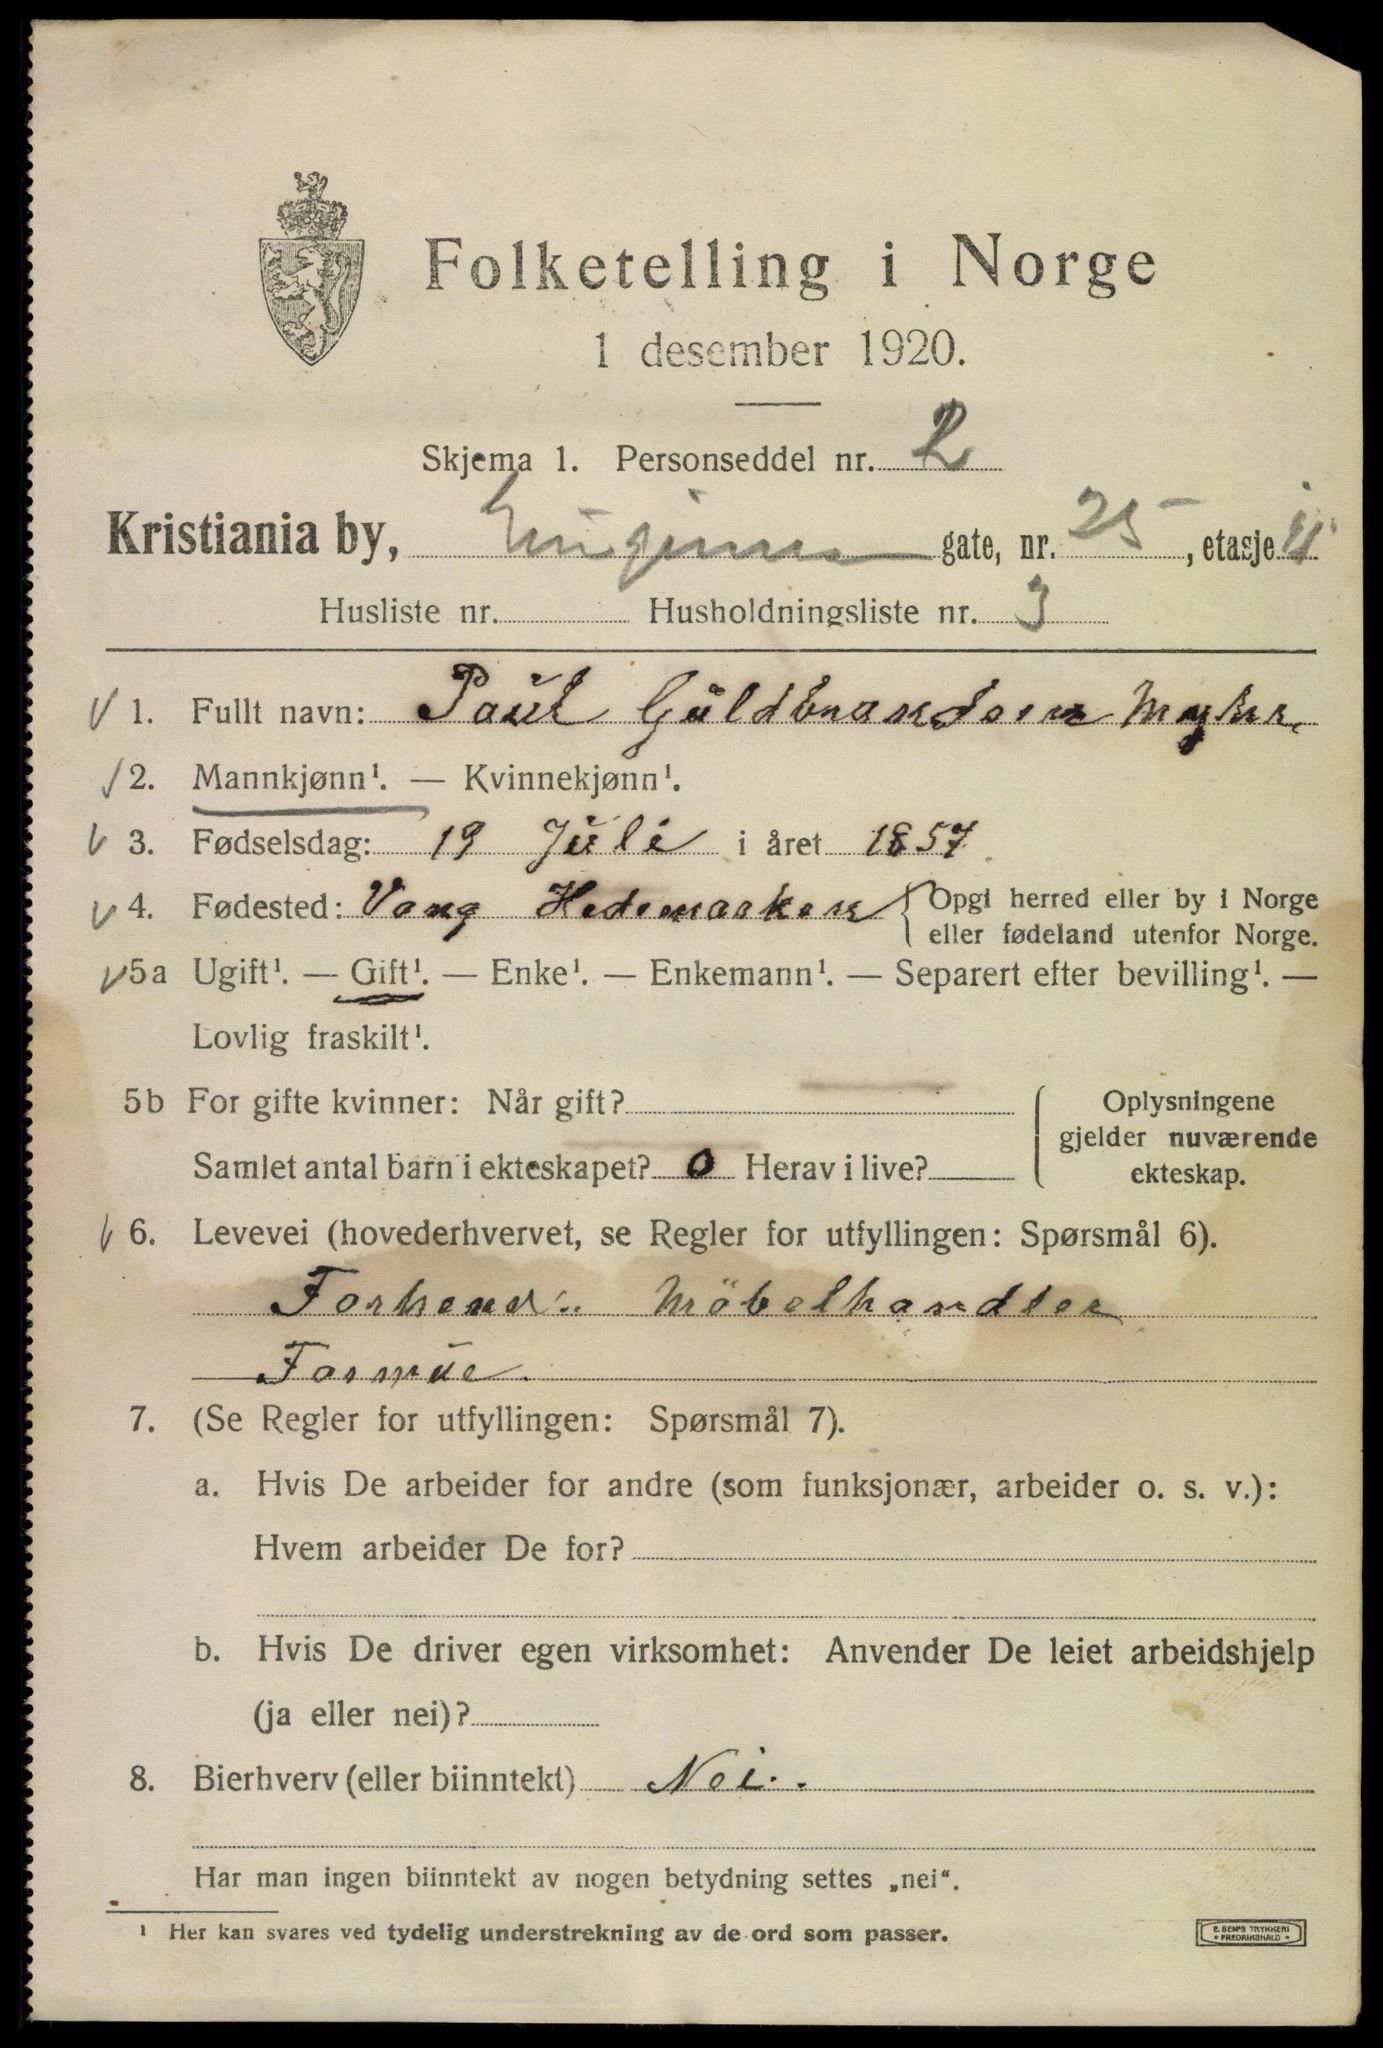 Folketelling i Norge
1 desember 1920.
Skjema 1. Personseddel nr. 2
Kristiania by, Eugenies gate, nr. 25, etasje II
Husliste nr. Husholdningsliste nr. 3
1. Fullt navn: Paul Guldbrandsen Myhre
2. Mannkjønn¹. — Kvinnekjønn¹.
3. Fødselsdag: 19 Juli i året 1857
4. Fødested: Vang Hedemarken { Opgi herred eller by i Norge
eller fødeland utenfor Norge.
5a Ugift¹. — Gift¹. — Enke¹. — Enkemann¹. — Separert efter bevilling¹. —
Lovlig fraskilt¹.
5b For gifte kvinner: Når gift?
Samlet antal barn i ekteskapet? 0 Herav i live?
Oplysningene
gjelder nuværende
ekteskap.
6. Levevei (hovederhvervet, se Regler for utfyllingen: Spørsmål 6).
Forhenv. Möbelhandler
Formue.
7. (Se Regler for utfyllingen: Spørsmål 7).
a. Hvis De arbeider for andre (som funksjonær, arbeider o. s. v.):
Hvem arbeider De for?
b. Hvis De driver egen virksomhet: Anvender De leiet arbeidshjelp
(ja eller nei)?
8. Bierhverv (eller biinntekt) Nei.
Har man ingen biinntekt av nogen betydning settes „nei“.
¹ Her kan svares ved tydelig understrekning av de ord som passer.
E. SEM'S TRYKKERI
• FREDRIKSHALD •